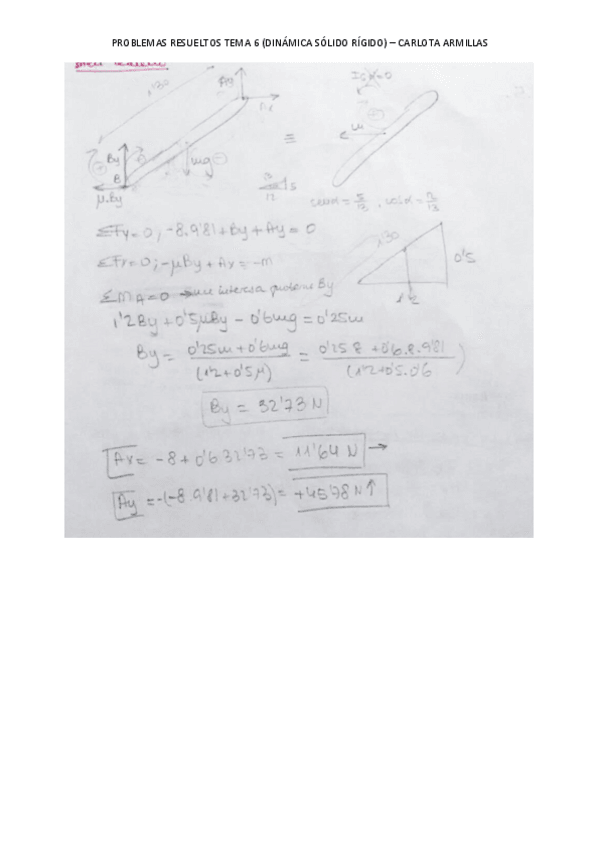 PROBLEMAS RESUELTOS TEMA 6 (DINÁMICA SÓLIDO RÍGIDO) – CARLOTA ARMILLAS
1'30
Ay
By
mg
B
μ.By
≡
12
5
cosα = 12/13
1'30
0'5
1'2
ΣFy=0; -8.9'81+By+Ay=0
ΣFx=0; -μBy+Ax=-m
ΣMA=0
By
1'2By+0'5μBy-0'6mg=0'25m
By = (0'25m+0'6mg)/(1'2+0'5μ) = (0'25 8+0'6.8.9'81)/(1'2+0'5.0'6)
By = 32'73 N
Ax = -8+0'6 32'73 = 11'64 N →
Ay = -(-8.9'81+32'73) = +45'78 N ↑